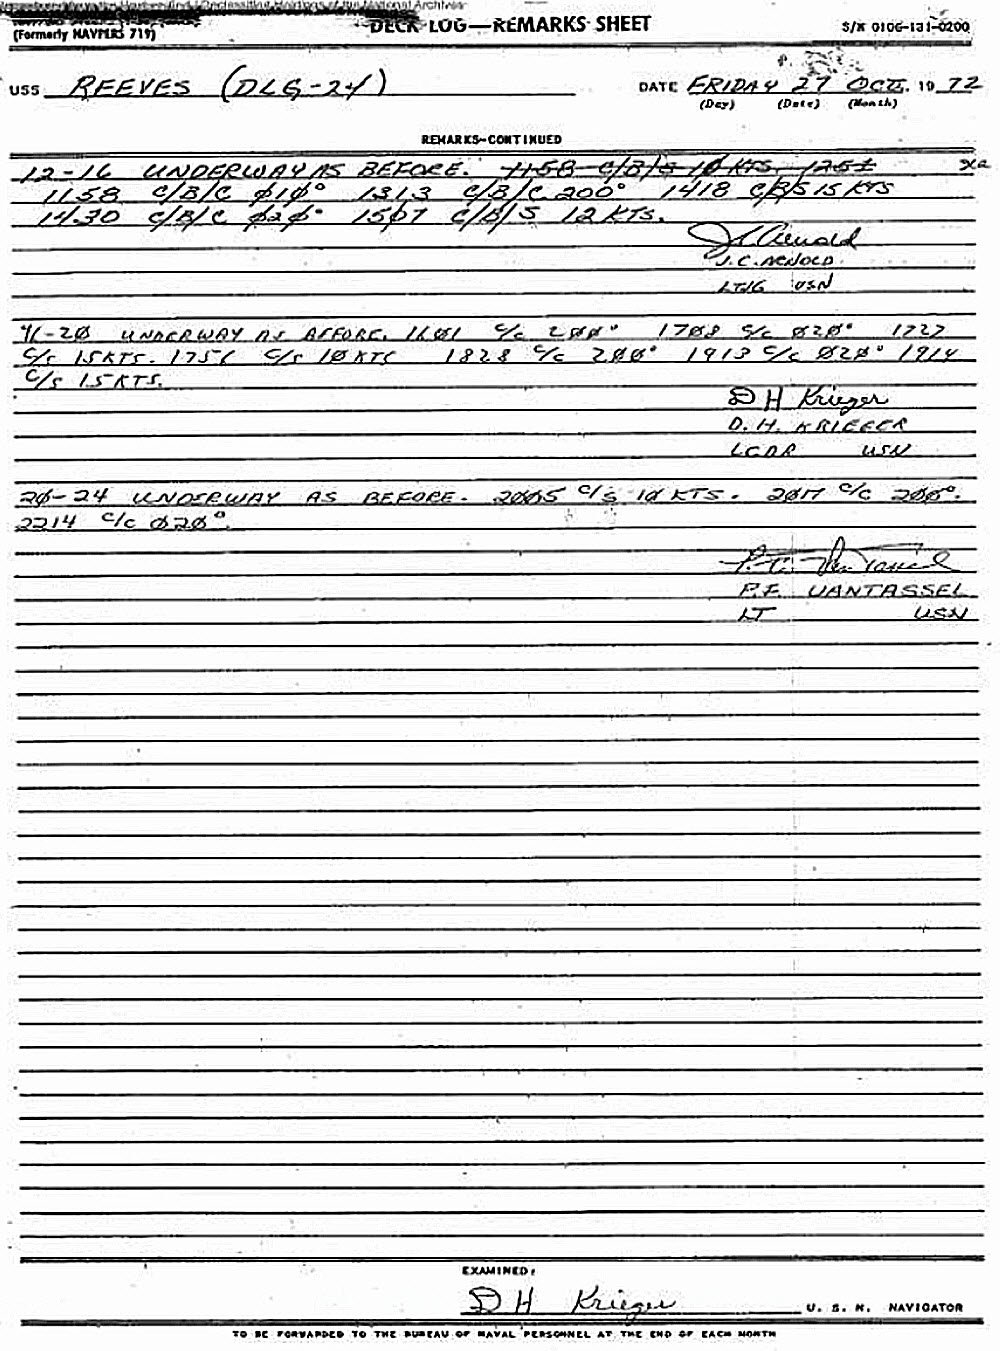 Declassified Holdings of the National Archives
(Formerly NAVPERS 719)
DECK LOG—REMARKS SHEET
S/N 0106-131-0200
USS REEVES (DLG-24)
DATE FRIDAY 27 OCT. 19 72
(Day) (Date) (Month)
REMARKS—CONTINUED
12-16 UNDERWAY AS BEFORE. 1158 C/B/S 10 KTS. 1251
1158 C/B/C Ø1Ø° 1313 C/B/C 200° 1418 C/B/S 15 KTS
1430 C/B/C Ø2Ø° 15Ø7 C/B/S 12 KTS.
J C Arnold
J. C. ARNOLD
LTJG USN
16-2Ø UNDERWAY AS BEFORE. 16Ø1 C/C 2ØØ° 17Ø8 C/C Ø2Ø° 1727
C/S 15 KTS. 1756 C/S 1Ø KTS 1828 C/C 2ØØ° 1913 C/C Ø2Ø° 1914
C/S 15 KTS.
D H Krieger
D. H. KRIEGER
LCDR USN
2Ø-24 UNDERWAY AS BEFORE. 2ØØ5 C/S 1Ø KTS. 2Ø17 C/C 2ØØ°.
2214 C/C Ø2Ø°.
P. E. VanTassel
P.E. VANTASSEL
LT USN
EXAMINED:
D H Krieger U. S. N. NAVIGATOR
TO BE FORWARDED TO THE BUREAU OF NAVAL PERSONNEL AT THE END OF EACH MONTH